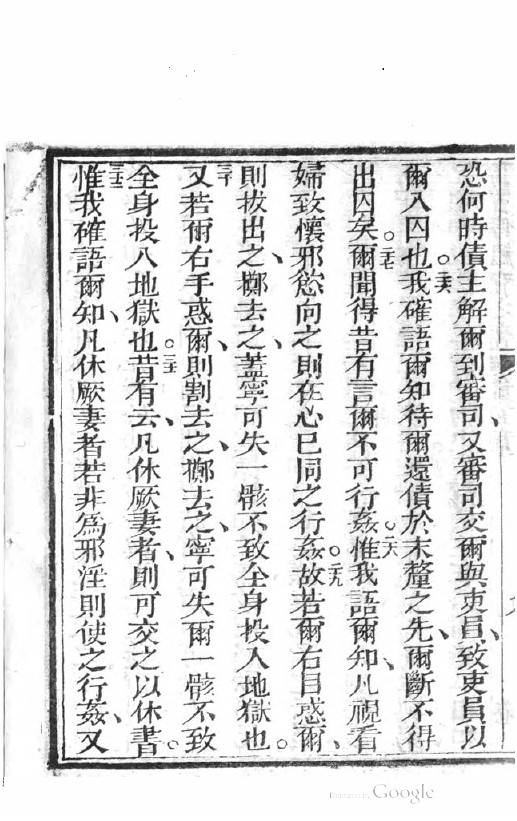 恐何時債主解爾到審司、又審司交爾與吏員、致吏員以
爾入囚也。二六我確語爾知、待爾還債於末釐之先、爾斷不得
出囚矣。二七爾聞得昔有言、爾不可行姦。二八惟我語爾知、凡視看
婦致懷邪慾向之、則在心已同之行姦。二九故若爾右目惑爾、
則拔出之、擲去之、蓋寧可失一骸、不致全身投入地獄也。
三十又若爾右手惑爾、則割去之、擲去之、寧可失爾一骸、不致
全身投入地獄也。三一昔有云、凡休厥妻者、則可交之以休書。
三二惟我確語爾知、凡休厥妻者、若非為邪淫、則使之行姦、又
Digitized by Google